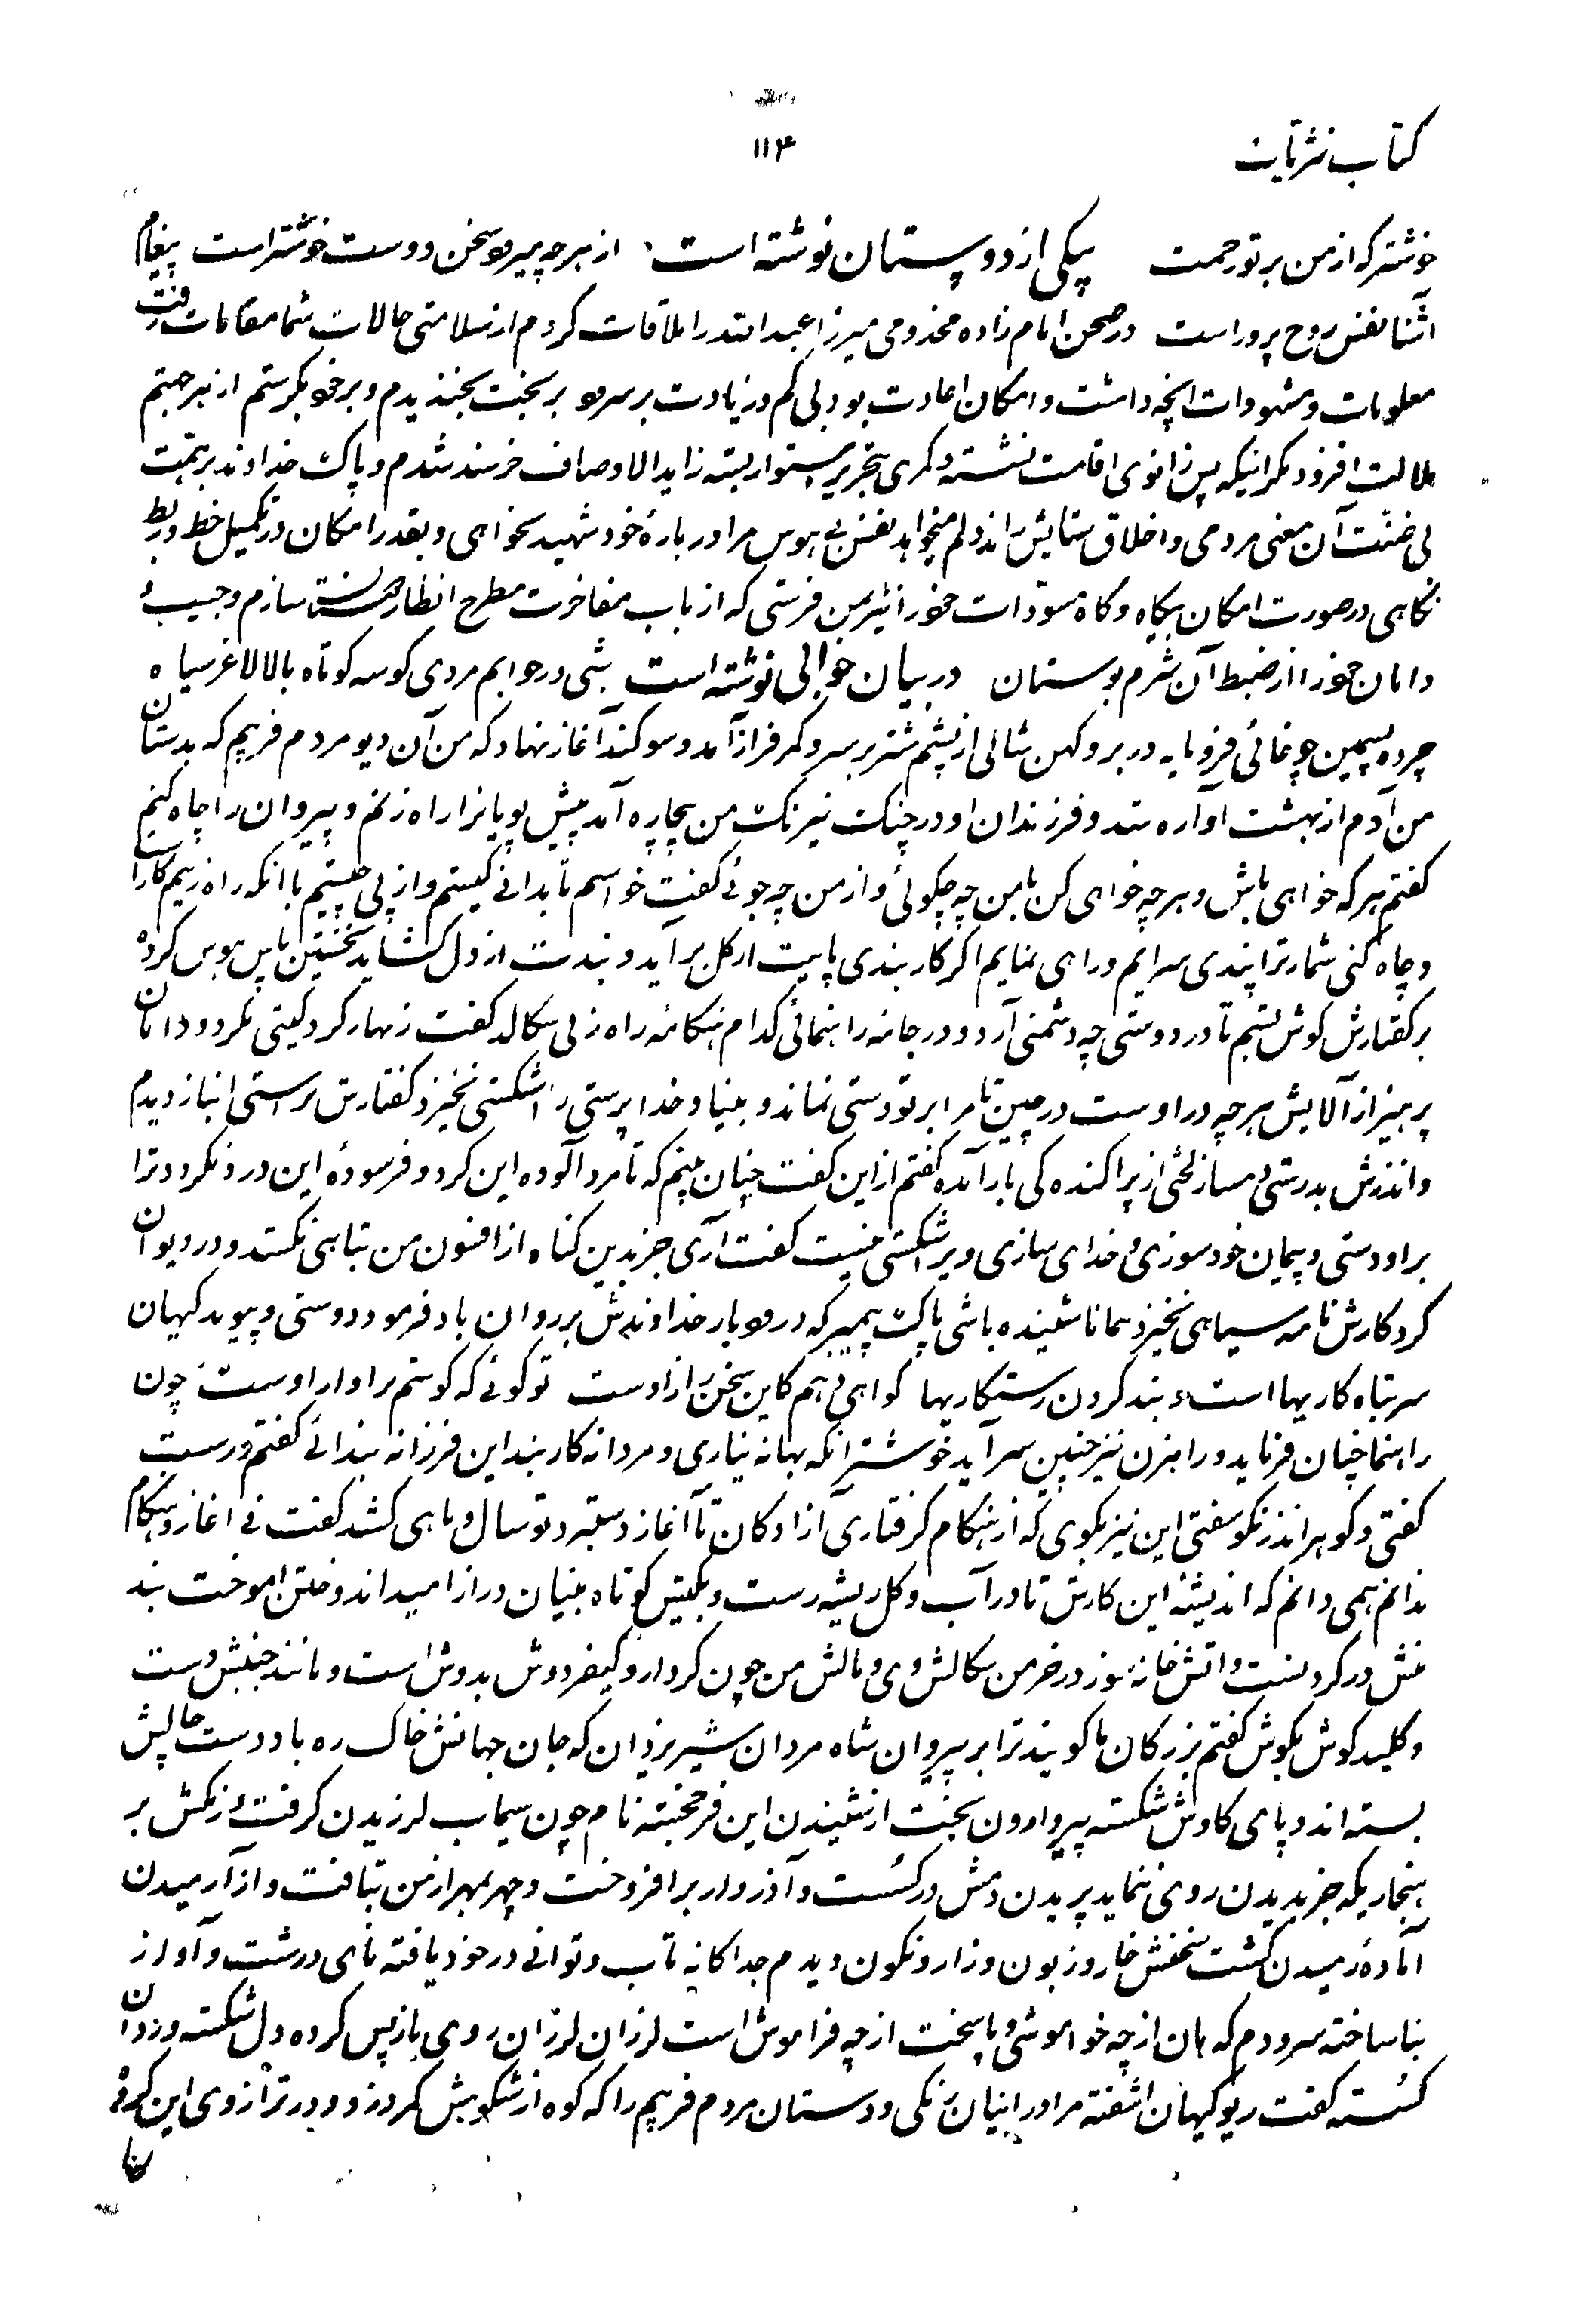 کتاب نثریات
۱۱۴
خوشتر که از من بر تو رحمت بیکی از دوستان نوشته است از هر چه میرود سخن دوست خوشتر است پیغام
آشنا نفس روح پرور است در صحن امام زاده مخدومی میرزا عبدالله را ملاقات کردم از سلامتی حالات شما مقامات رفت
معلومات و مشهودات انچه داشت و امکان اعادت بود بی کم و زیادت بر سرود بر بخت بخندیدم و بر خود بگرستم از هر جستم
ملالت افزود مگر اینکه پس زانوی اقامت نشسته و کمری بتحریر استوار بسته زاید الاوصاف خرسند شدم و پاک خداوند بر همت
بی ضنت آن معنی مردمی و اخلاق ستایش راند دلم میخواهد نفس بی هوس مرا در بارهٔ خود شهید نخواهی و بقدر امکان در تکمیل خط و ربط
نکاهی در صورت امکان بیکاه و کاه مسودات خود را نیز بمن فرستی که از باب مفاخرت مطرح انظار سازم و جیب
دامان خود را از ضبط آن شرم بوستان در بیان خوابی نوشته است شبی در خوابم مردی کوسه کوتاه بالا لاغر سیاه
چرده پشمین چوغائی فرومایه در بر و کهن شالی از پشم شتر بر سر و کمر فراز آمد و سوکند آغاز نهاد که من آن دیو مردم فریبم که بدستان
من آدم از بهشت آواره شد و فرزندان او در چنک نیرنک من بیچاره آمد پیش پویانرا راه زنم و پیروان را چاه کنم
کفتم هر که خواهی باش و هر چه خواهی کن با من چه چکوئی و از من چه جوئی کفت خواستم تا بدانی کیستم و از پی چیستم با انکه راه زنیم کار است
و چاه کنی شمار ترا پندی سرایم و راهی نمایم اگر کار بندی پایت از کل بر آید و بندت از دل کشاید نخستین پاس هوس کرده
بر کفتارش کوش بستم تا در دوستی چه دشمنی آرد و در جامه راهنمائی کدام هنکامه راه زنی سکالد کفت زنهار کرد کیتی نکردد دامان
پرهیز از آلایش هر چه در اوست در چین تا مرا بر تو دستی نماند و بنیاد خدا پرستی را شکستی نخیزد کفتارش بر استی انباز دیدم
و اندرش بدرستی دمساز لختی از پراکنده کی باز آمده کفتم از این کفت چنان بینم که تا مرد آلوده این کرد و فرسودهٔ این درد نکردد ترا
بر او دستی و پیمان خود سوزی و خدای سازی ویرا شکستی نیست کفت آری جز بدین کناه از افسون من تباهی نکستد و در دیوان
کردکارش نامه سیاهی نخیزد همانا شنیده باشی پاک پیمبر که درود بار خداوندش بر روان باد فرمود دوستی و پیوند کیهان
سر تباه کاریها است و بند کردن رستکاریها کواهی دهم کاین سخن راز اوست تو کوئی که کوشم بر اوار اوست چون
راهنما چنان فرماید و راهزن نیز چنین سراید خوشتر انکه بهانه نیاری و مردانه کار بند این فرزانه پندائی کفتم درست
کفتی و کوهر اندرز نکو سفتی این نیز بکوی که از هنکام کرفتاری آزادکان تا آغاز دستبرد تو سال و ماهی کشد کفت نی اغاز و هنکام
ندانم همی دانم که اندیشه این کارش تا در آب و کل ریشه رست و بکیش کوتاه بنیان دراز امید اندوختن اموخت بند
منش در کردنست و اتش خانه سوز در خرمن سکالش وی و مالش من چون کردار و کیفر دوش بدوش است و مانند جنبش دست
و کلید کوش بکوش کفتم بزرکان ما کویند ترا بر پیروان شاه مردان شیر یزدان که جان جهانش خاک ره باد دست چالش
بسته اند و پای کاوش شکسته پیر وارون بخت از شنیدن این فرخجسته نام چون سیماب لرزیدن کرفت و رنکش بر
هنجاریکه جز بدیدن روی ننماید پریدن دمش در کسست و آذر وار بر افروخت و چهر بمهر از من بتافت و از آرمیدن
آمادهٔ رمیدن کشت سخنش خار و زبون و زار و نکون دیدم جداکانه تاب و توانی در خود یافته نای درشت و آواز
بناساخته سرودم که هان از چه خواموشی و پاسخت از چه فراموش است لرزان لرزان روی باز پس کرده دل شکسته و روان
کسسته کفت ریو کیهان اشفته مرا در انبان رنکی و دستان مردم فریبم را که کوه از شکوهش کمر دزدد در ترازوی این کروه